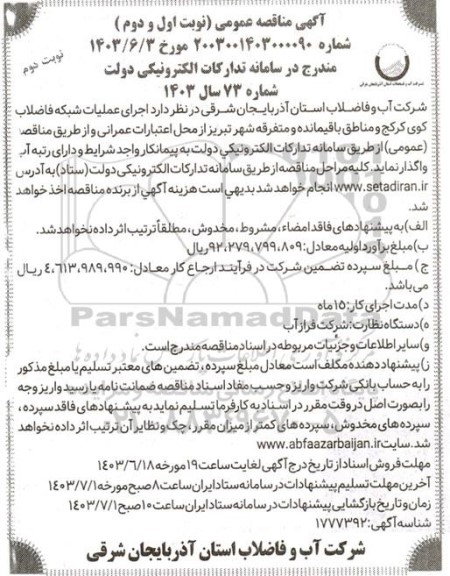 آگهی مناقصه عمومی (نوبت اول و دوم)
شماره ۲۰۰۳۰۰۱۴۰۳۰۰۰۰۹۰ مورخ ۱۴۰۳/۶/۳
مندرج در سامانه تدارکات الکترونیکی دولت
شماره ۷۳ سال ۱۴۰۳
نوبت دوم
شرکت آب و فاضلاب استان آذربایجان شرقی در نظر دارد اجرای عملیات شبکه فاضلاب
کوی کرکج و مناطق باقیمانده و متفرقه شهر تبریز از محل اعتبارات عمرانی و از طریق مناقصه
(عمومی) از طریق سامانه تدارکات الکترونیکی دولت به پیمانکار واجد شرایط و دارای رتبه آب
واگذار نماید. کلیه مراحل مناقصه از طریق سامانه تدارکات الکترونیکی دولت (ستاد) به آدرس
www.setadiran.ir انجام خواهد شد بدیهی است هزینه آگهی از برنده مناقصه اخذ خواهد
شد.
الف) به پیشنهادهای فاقد امضاء، مشروط، مخدوش، مطلقاً ترتیب اثر داده نخواهد شد.
ب) مبلغ برآورد اولیه معادل: ۹۲،۲۷۹،۷۹۹،۸۰۹ ریال
ج) مبلغ سپرده تضمین شرکت در فرآیند ارجاع کار معادل: ۴،۶۱۳،۹۸۹،۹۹۰ ریال
می باشد.
د) مدت اجرای کار: ۱۵ ماه
ه) دستگاه نظارت: شرکت فراز آب
و) سایر اطلاعات و جزئیات مربوطه در اسناد مناقصه مندرج است.
ز) پیشنهاد دهنده مکلف است معادل مبلغ سپرده، تضمین های معتبر تسلیم یا مبلغ مذکور
را به حساب بانکی شرکت واریز و حسب مفاد اسناد مناقصه ضمانت نامه یا رسید واریز وجه
را بصورت اصل در وقت مقرر در اسناد به کارفرما تسلیم نماید به پیشنهادهای فاقد سپرده،
سپرده های مخدوش، سپرده های کمتر از میزان مقرر، چک و نظایر آن ترتیب اثر داده نخواهد
شد. سایت www.abfaazarbaijan.ir
مهلت فروش اسناد از تاریخ درج آگهی لغایت ساعت ۱۹ مورخه ۱۴۰۳/۶/۱۸
آخرین مهلت تسلیم پیشنهادات در سامانه ستاد ایران ساعت ۸ صبح مورخه ۱۴۰۳/۷/۱
زمان و تاریخ بازگشایی پیشنهادات در سامانه ستاد ایران ساعت ۱۰ صبح ۱۴۰۳/۷/۱
شناسه آگهی: ۱۷۷۷۳۹۲
شرکت آب و فاضلاب استان آذربایجان شرقی
ParsNamadData